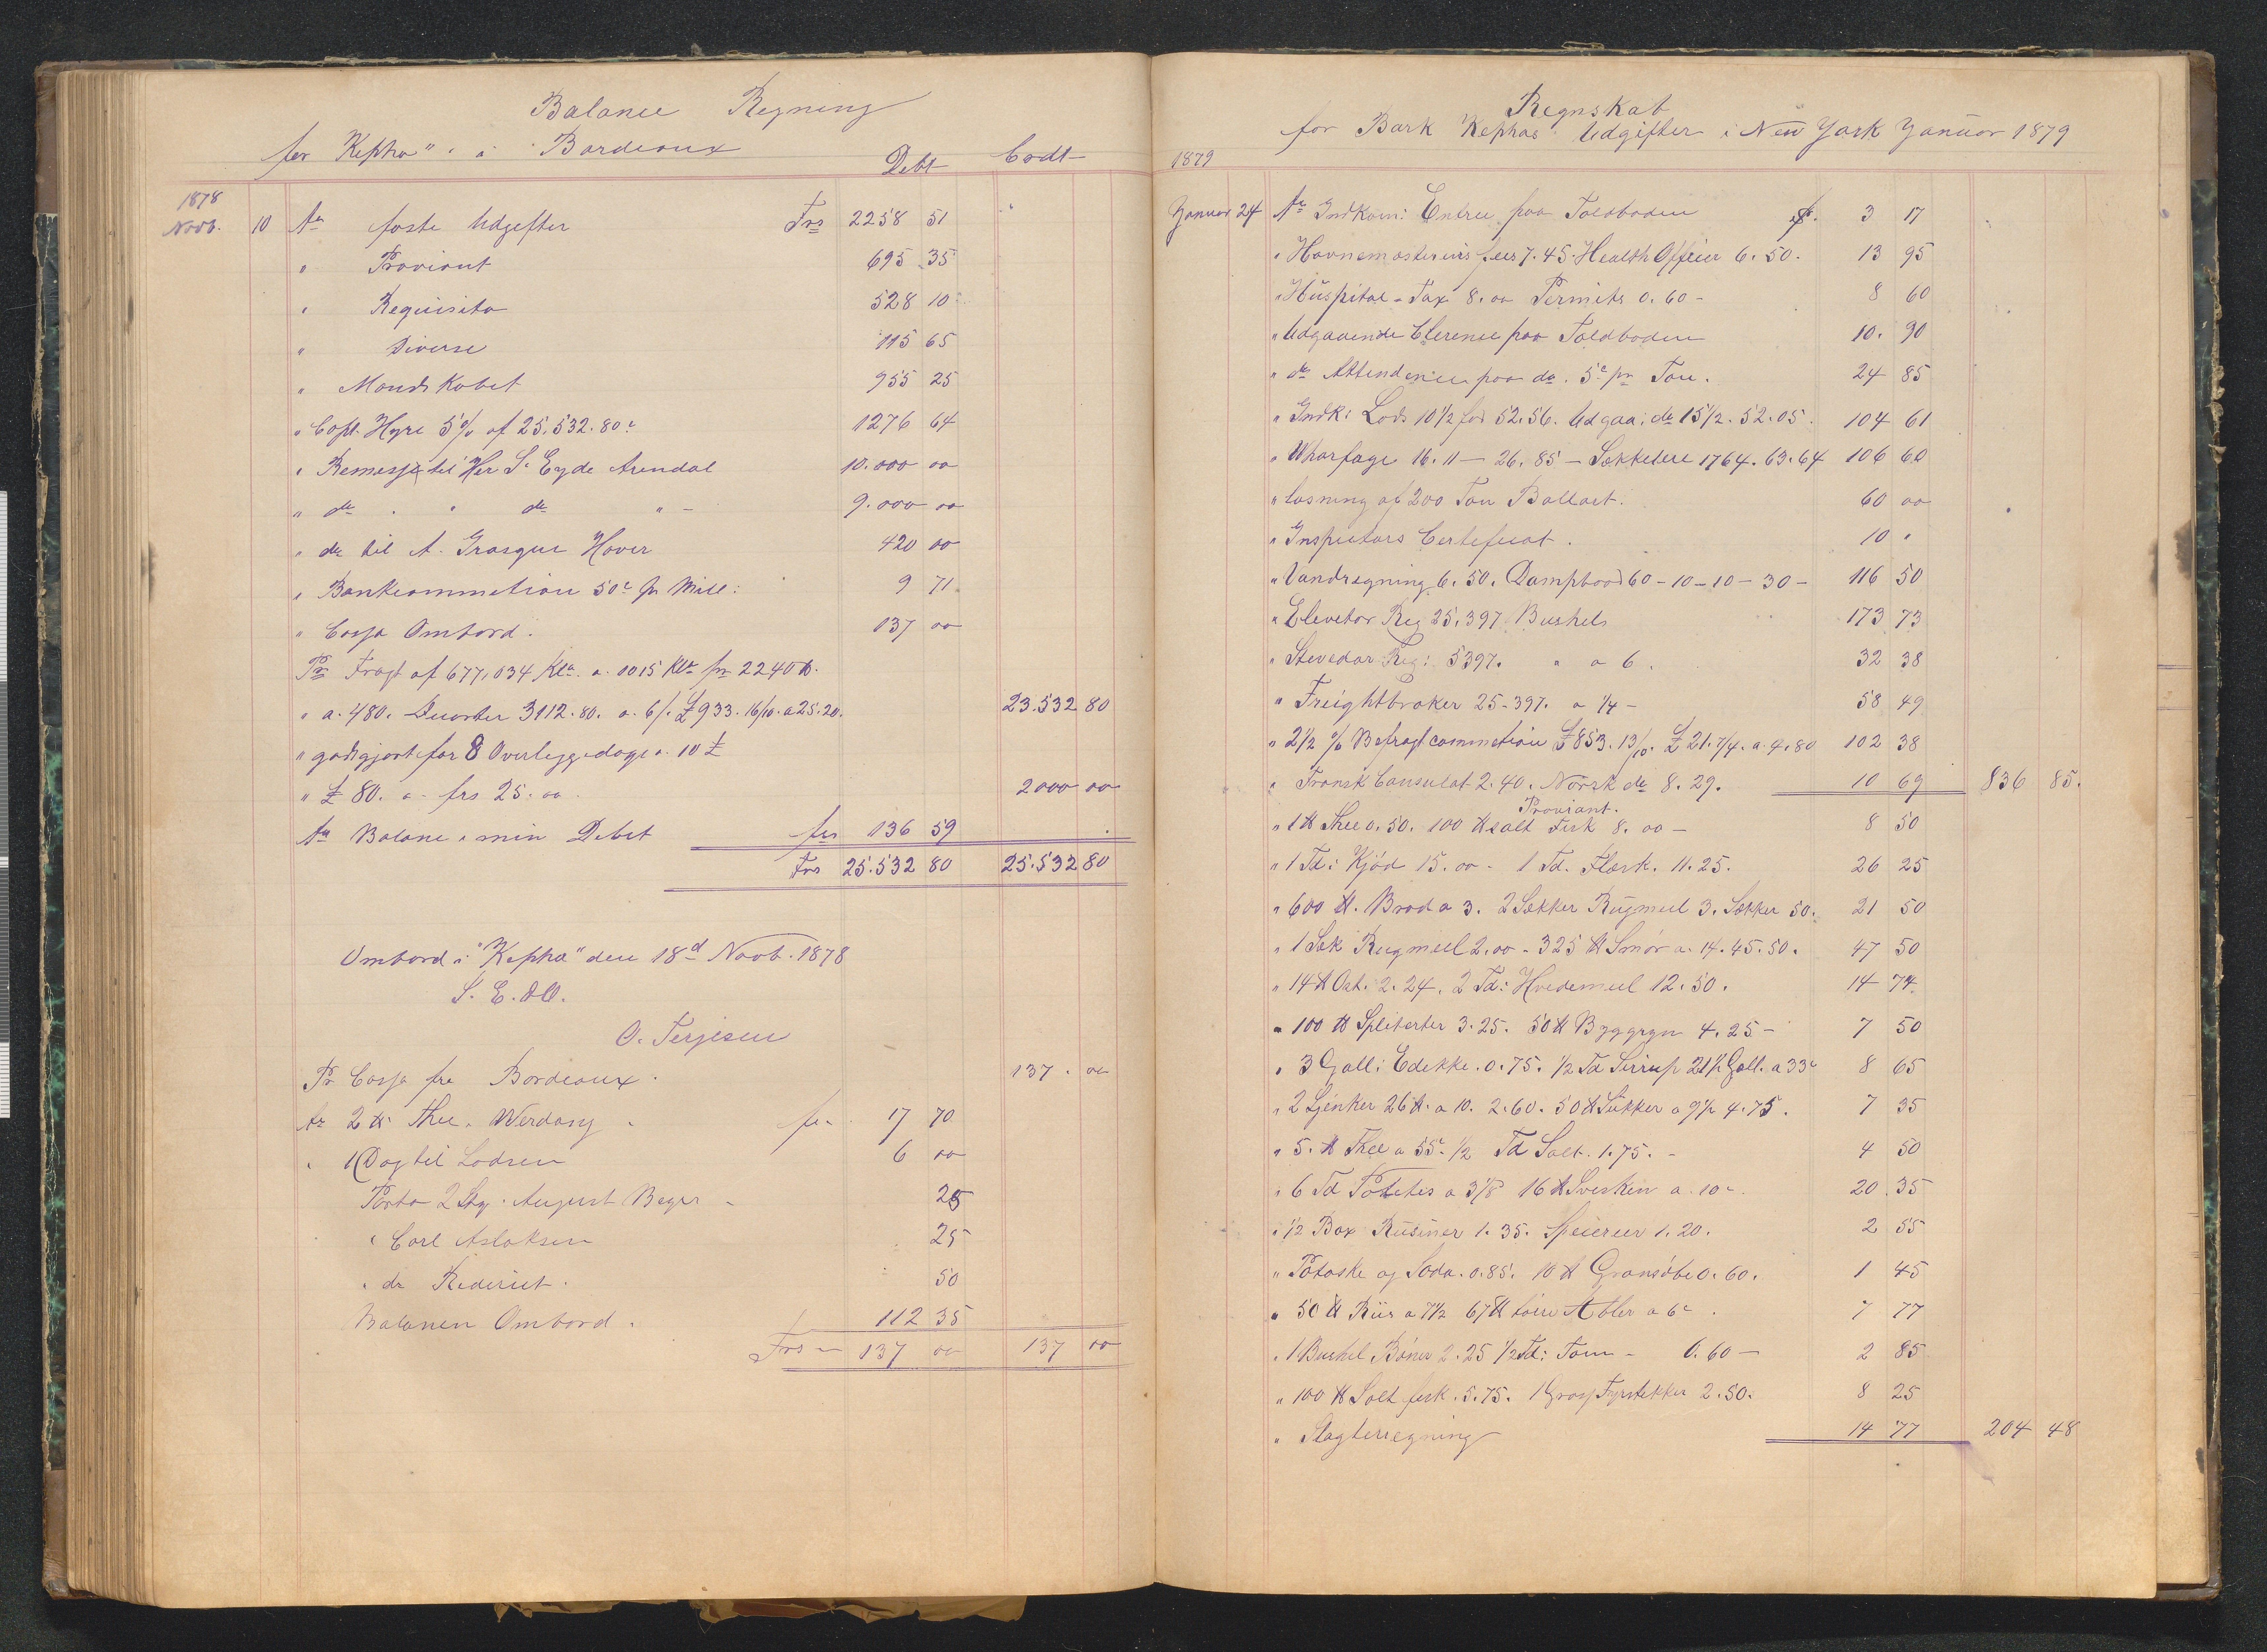 Balance Regning
for "Kepha" i Bordeaux
Debt Credt
1878
Novb. 10 An faste Udgifter Frs 2258 51
" Proviant 695 35
" Requisita 528 10
" Diverse 115 65
" Mandskabet 955 25
" Capt. Hyre 5% af 25.532.80c 1276 64
" Remesse til Her S. Eyde Arendal 10.000 00
" do " do " - 9.000 00
" do til A. Grasque Havre 420 00
" Bankcommetion 50c pr Mill: 9 71
" Cassa Ombord. 137 00
Pr Fragt af 677,034 Klo. a. 1015 Klo pr 2240 ℔.
" a. 480. Quarter 3112.80. a. 6/. £933.16/10. a 25.20. 23.532 80
" godtgjort for 8 Overliggedage a. 10 £
" £ 80. a. frs 25.00. 2000 00
An Balanc i min Debet frs 136 59
Frs 25.532 80 25.532 80
Ombord i "Kepha" den 18d Novb. 1878
S. E. & O.
O. Terjesen
Pr Cassa fra Bordeaux. 137. 00
An 2 ℔ Thee. frs. 17 70
" 1 Dag til Lodsen 6 00
Porto 2 August 25
" Carl Aslaksen 25
" do Rederiet. 50
Balancen Ombord. 112 35
Frs 137 00 137 00
Regnskab
for Bark Kephas Udgifter i New York Januar 1879
1879
Januar 24 An Indkom: Entree paa Toldboden $. 3 17
" Havnemesterens fees 7.45. Health Officer 6.50. 13 95
" Huspital-Tax 8.00 Permits 0.60 - 8 60
" Udgaaende Clerence paa Toldboden 10. 90
" do Attendence paa do. 5c pr Ton. 24 85
" Indk: Lods 10 1/2 fod 52.56. Udgaa: do 15 1/2. 52.05. 104 61
" Wharfage 16.11 - 26.85 - Sækkeleie 1764. 63.64 106 60
" losning af 200 Ton Ballast. 60 00
" Inspectors Certeficat. 10 "
" Vandregning 6.50. Dampbaad 60-10-10-30- 116 50
" Elevetor Reg 25,397 Bushels 173 73
" Stevedor Reg: 5397. " a 6. 32 38
" Freightbroker 25-397. a 1/4 - 58 49
" 2 1/2 % Befragtcommetion £853.13/10. £21.7/4. a. 4.80 102 38
" Fransk Consulat 2.40. Norsk do 8.29. 10 69 836 85.
Proviant.
" 1 ℔ Thee 0.50. 100 ℔ salt Fisk 8.00 - 8 50
" 1 Td: Kjød 15.00 - 1 Td. Flesk. 11.25. 26 25
" 600 ℔. Brød a 3. 2 Sækker Rugmeel 3. Sækker 50. 21 50
" 1 Sæk Rugmeel 2.00 - 325 ℔ Smør a. 14. 45.50. 47 50
" 14 ℔ Ost. 2.24. 2 Td: Hvedemeel 12.50. 14 74
" 100 ℔ Spliterter 3.25. 50 ℔ Byggryn 4.25 - 7 50
" 3 Gall: Edekke. 0.75. 1/2 Td Sirrup 21 1/2 Gall. a 33c 8 65
" 2 Sjenker 26 ℔. a 10. 2.60. 50 ℔ Sukker a 9 1/2 4.75. 7 35
" 5. ℔ Thee a 55c 1/2 Td Salt. 1.75. - 4 50
" 6 Td Potetes a 3 1/8 16 ℔ Svesker a. 10c. 20 35
" 1/2 Box Rusiner 1.35. Speierier 1.20. 2 55
" Potaske og Soda. 0.85. 10 ℔ Grønsøbe 0.60. 1 45
" 50 ℔ Riis a 7 1/2 67 ℔ Æbler a 6c. 7 77
" 1 Bushel Bøner 2.25 1/2 Td: Tom - 0.60 - 2 85
" 100 ℔ Salt fisk. 5.75. 1 Gros Fyrstekker 2.50. 8 25
" Slagterregning 14 77 204 48